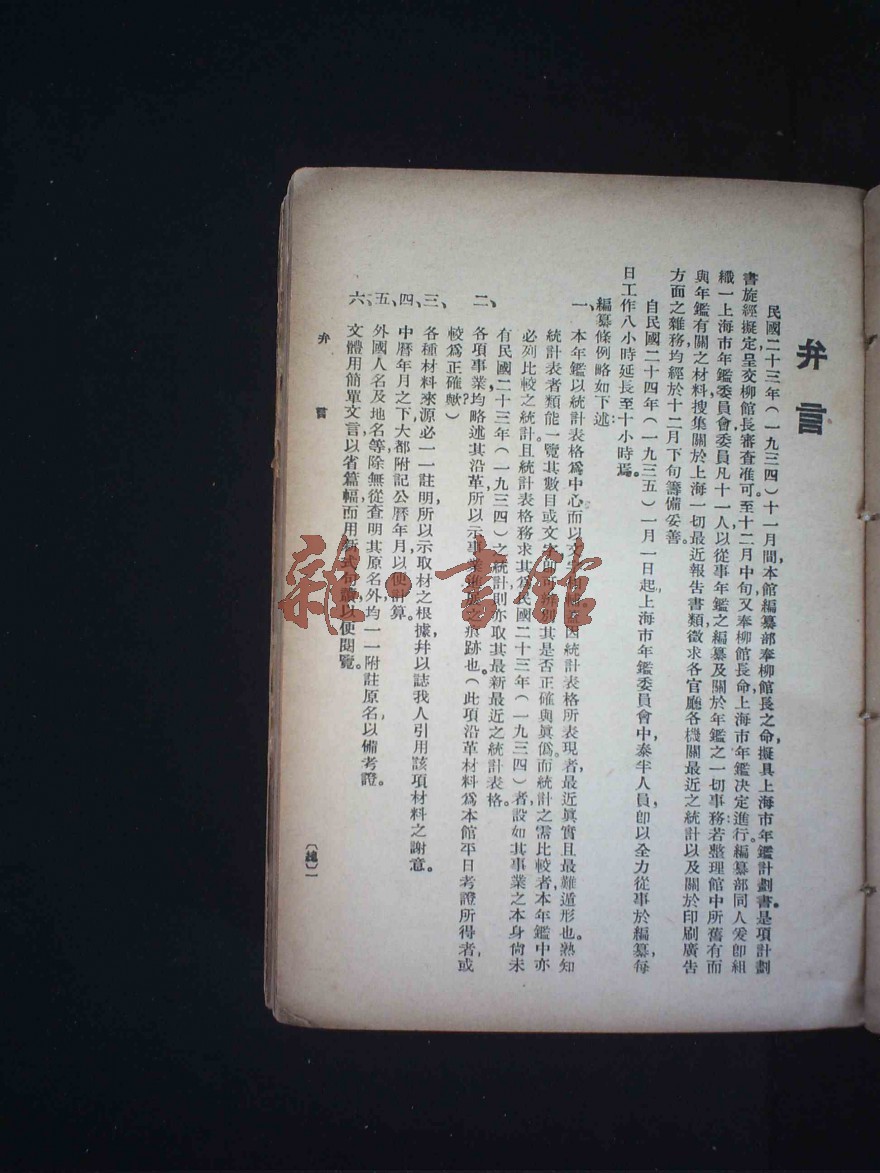 弁言
民國二十三年(一九三四)十一月間,本館編纂部奉柳館長之命,擬具上海市年鑑計劃書。是項計劃
書旋經擬定,呈交柳館長審查准可。至十二月中旬,又奉柳館長命,上海市年鑑決定進行。編纂部同人爰卽組
織一上海市年鑑委員會,委員凡十一人,以從事年鑑之編纂及關於年鑑之一切事務。若整理館中所舊有而
與年鑑有關之材料,搜集關於上海一切最近報告書類,徵求各官廳各機關最近之統計,以及關於印刷廣告
方面之雜務,均經於十二月下旬籌備妥善。
自民國二十四年(一九三五)一月一日起,上海市年鑑委員會中泰半人員,卽以全力從事於編纂,每
日工作八小時延長至十小時焉。
編纂條例略如下述:
一、本年鑑以統計表格爲中心,而以文字 因統計表格所表現者,最近眞實且最難遁形也。熟知
統計表者類能一覽其數目或文字而可辨別其是否正確與眞僞。而統計之需比較者,本年鑑中亦
必列比較之統計,且統計表格務求其爲民國二十三年(一九三四)者,設如其事業之本身尙未
有民國二十三年(一九三四)之統計,則亦取其最新最近之統計表格。
二、各項事業均略述其沿革,所以示事業 之痕跡也。(此項沿革材料爲本館平日考證所得者,或
較爲正確歟?)
三、各種材料來源必一一註明,所以示取材之根據,幷以誌我人引用該項材料之謝意。
四、中曆年月之下,大都附記公曆年月以便計算。
五、外國人名及地名等,除無從查明其原名外,均一一附註原名,以備考證。
六、文體用簡單文言,以省篇幅,而用新式句讀,以便閱覽。
弁言
(總)一
雜·書館